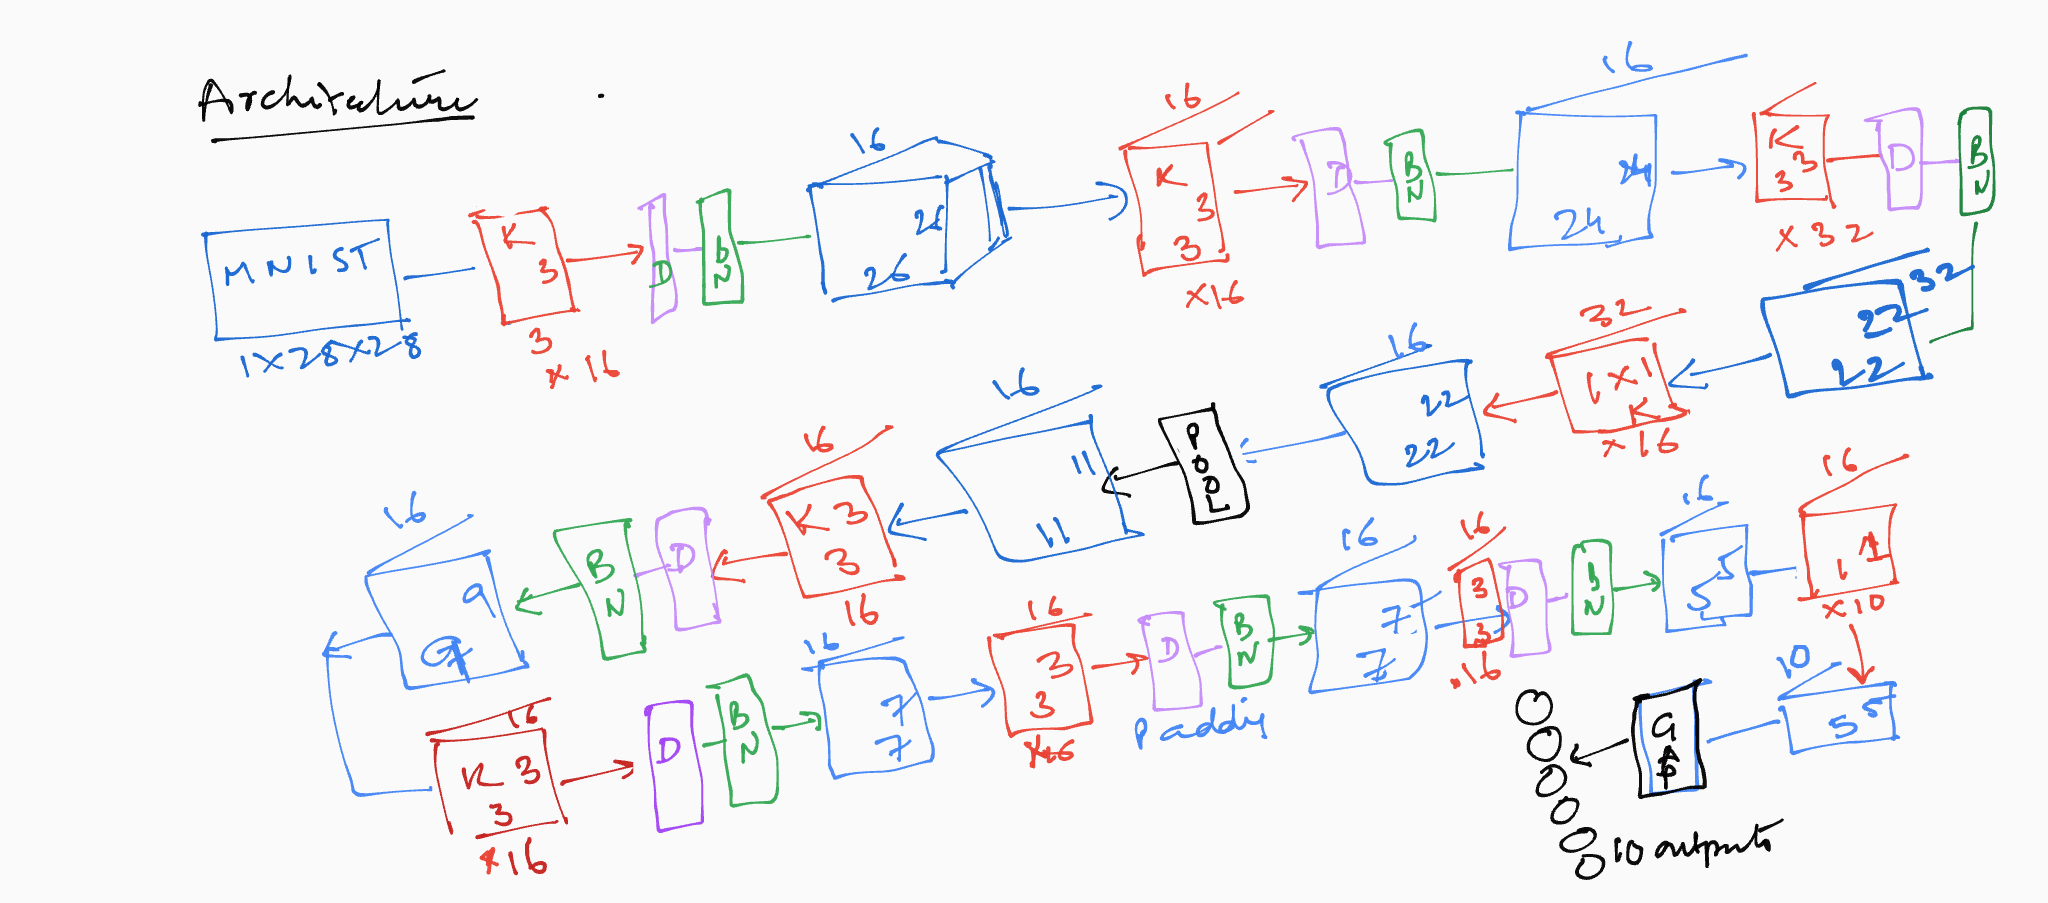 Architecture
MNIST
1X28X28
K
3
3
x 16
D
BN
16
26
26
16
K
3
3
X16
D
BN
16
24
24
K
3
3
X 32
D
BN
32
22
22
32
1X1
K
X16
16
22
22
POOL
16
11
11
16
K 3
3
16
D
BN
16
9
9
16
K 3
3
X16
D
BN
16
7
7
16
3
3
X16
D
BN
Paddig
16
7
7
16
3
3
x16
D
BN
16
5
5
16
1
1
X10
10
5
5
GAP
10 outputs